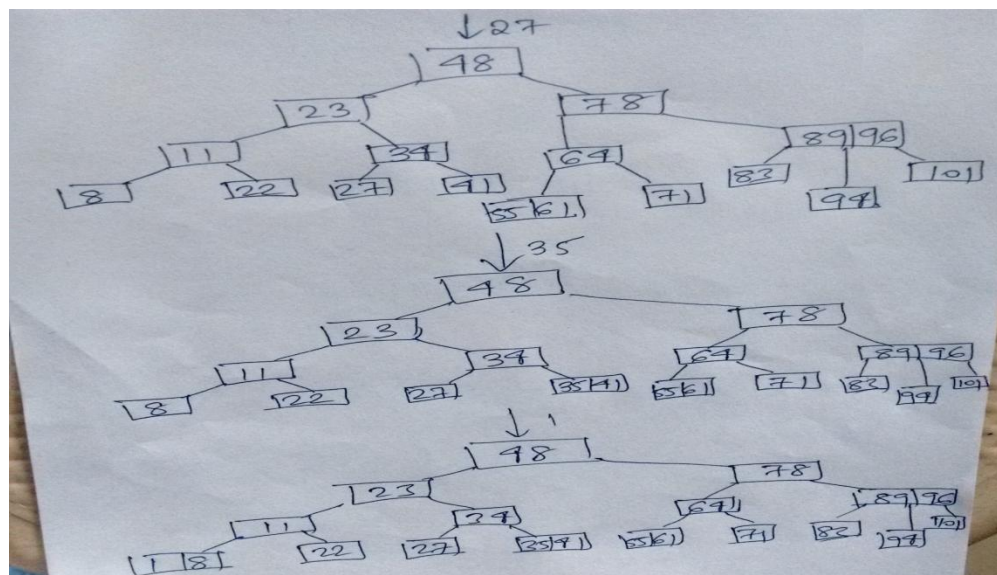 ↓ 27
48
23 78
11 34 64 89|96
8 22 27 41 55|61 71 83 94 101
↓ 35
48
23 78
11 34 64 89|96
8 22 27 35|41 55|61 71 83 94 101
↓ 1
48
23 78
11 34 64 89|96
1|8 22 27 35|41 55|61 71 83 94 101